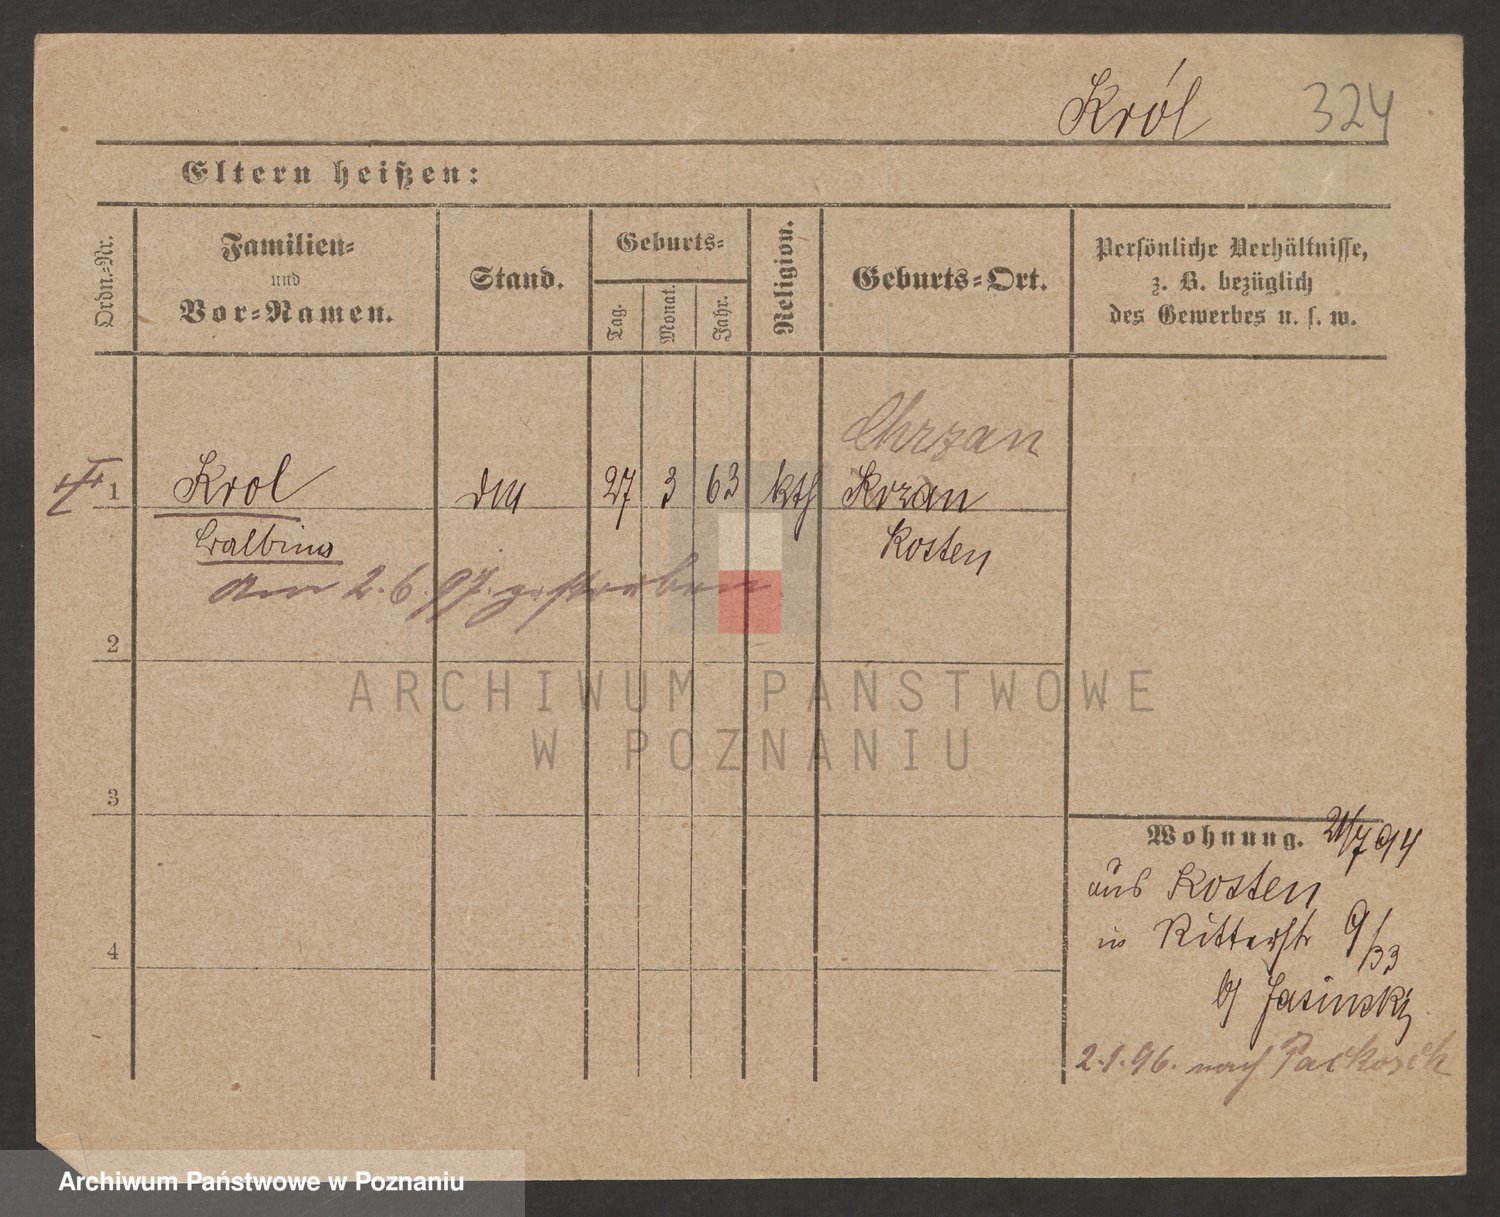 Król 324
Eltern heißen:
Ordn.-Nr.
Familien-
und
Vor-Namen.
Stand.
Geburts-
Tag.
Monat.
Jahr.
Religion.
Geburts-Ort.
Persönliche Verhältnisse,
z. B. bezüglich
des Gewerbes u. s. w.
Chrzan
1 Krol 27 3 63 kth Krzan
Balbina Kosten
am 2.6.97. gestorben
2
3
4
Wohnung. 21/7 94
aus Kosten
in Ritterstr 9/33
b/ Jasinski
2.1.96. nach Packosch
ARCHIWUM PAŃSTWOWE
W POZNANIU
Archiwum Państwowe w Poznaniu